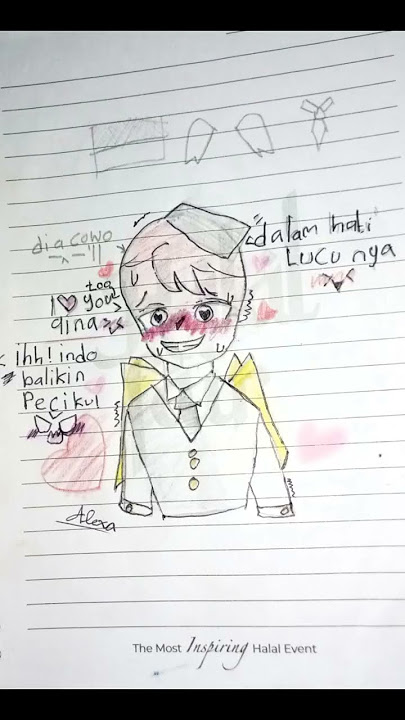 dia cowo
dalam hati
Lucu nya
too
I ♥ you
gina
Ihh! indo
balikin
Pecikul
Alexa
The Most Inspiring Halal Event